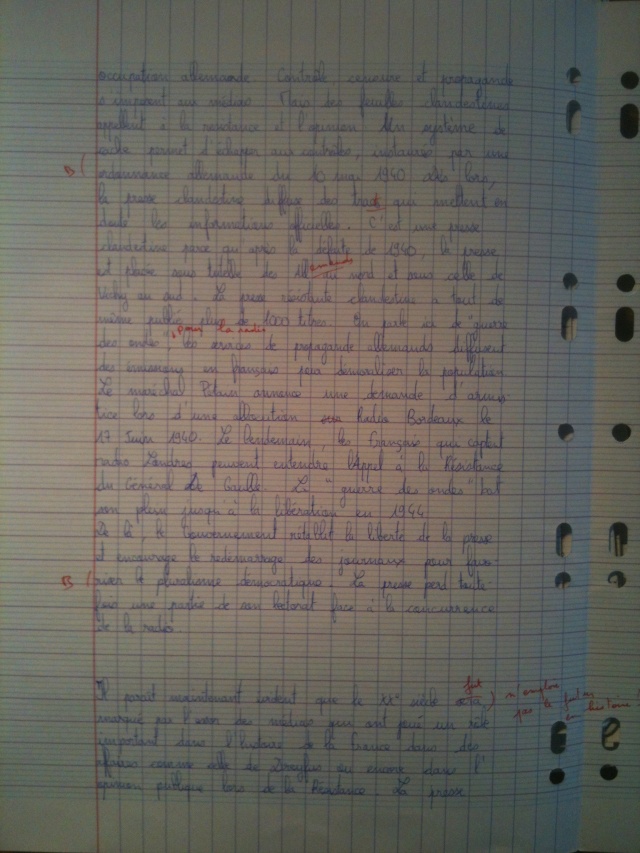 occupation allemande. Contrôle censure et propagande
s'imposent aux médias. Mais des feuilles clandestines
appellent à la résistance et l'opinion. Un système de
permet d'échapper aux contrôles, instaurés par une
B (
ordonnance allemande du 10 mai 1940. Dès lors,
la presse clandestine diffuse des tracts qui mettent en
doute les informations officielles. C'est une presse
clandestine parce qu'après la défaite de 1940, la presse
est placée sous tutelle des All au nord et sous celle de
Vichy au sud. La presse résistante clandestine a tout de
même publié plus de 1000 titres. On parle ici de "guerre
la radio
des ondes" les services de propagande allemands diffusent
des émissions en français pour démoraliser la population.
Le maréchal Pétain annonce une demande d'armis-
tice lors d'une allocution Radio Bordeaux le
17 Juin 1940. Le lendemain, les Français qui captent
radio Londres peuvent entendre l'Appel à la Résistance
du Général De Gaulle. La "guerre des ondes" bat
son plein jusqu'à la libération en 1944.
De là, le Gouvernement rétablit la liberté de la presse
et encourage le redémarrage des journaux pour favo-
B (
riser le pluralisme démocratique. La presse perd toute-
fois une partie de son lectorat face à la concurrence
de la radio.
fut
Il paraît maintenant évident que le XXe siècle
) n'emploie pas le futur en histoire
marqué par l'essor des médias qui ont joué un rôle
important dans l'histoire de la France dans des
affaires comme celle de Dreyfus ou encore dans l'
opinion publique lors de la Résistance. La presse